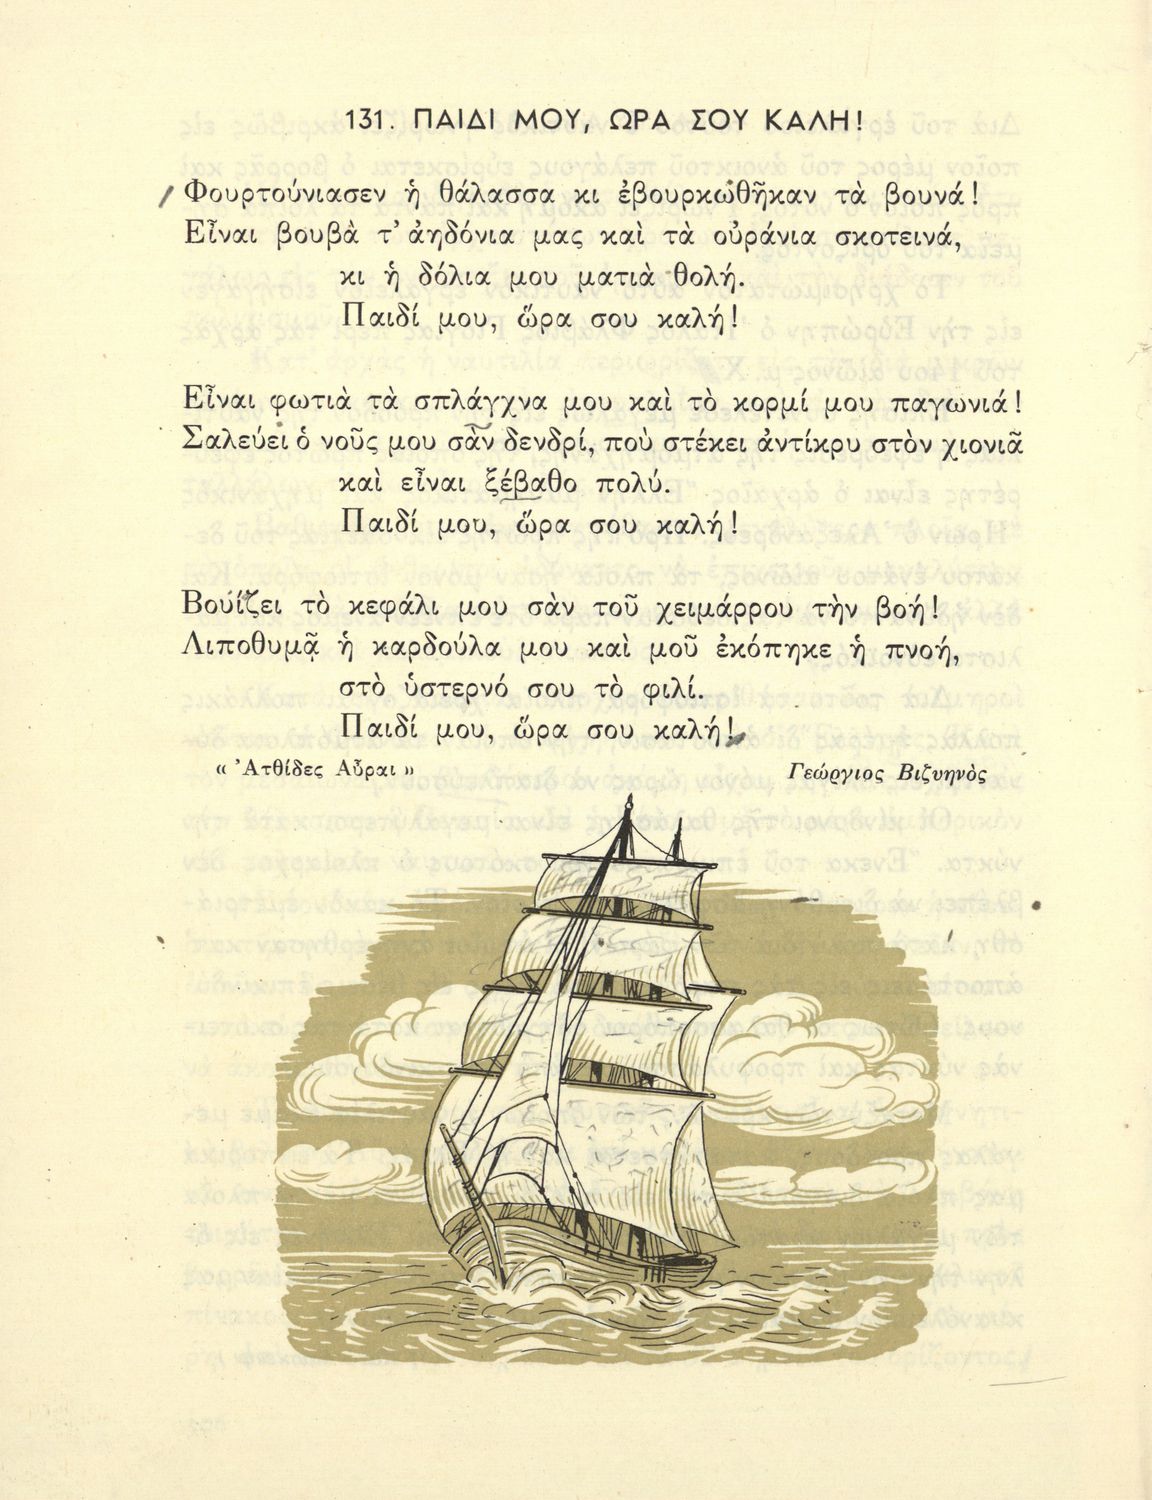 131. ΠΑΙΔΙ ΜΟΥ, ΩΡΑ ΣΟΥ ΚΑΛΗ!
Φουρτούνιασεν ἡ θάλασσα κι ἐβουρκώθῆκαν τὰ βουνά!
Εἶναι βουβὰ τ' ἀηδόνια μας καὶ τὰ οὐράνια σκοτεινά,
κι ἡ δόλια μου ματιὰ θολή.
Παιδί μου, ὥρα σου καλή!
Εἶναι φωτιὰ τὰ σπλάγχνα μου καὶ τὸ κορμί μου παγωνιά!
Σαλεύει ὁ νοῦς μου σὰν δενδρί, ποὺ στέκει ἀντίκρυ στὸν χιονιᾶ
καὶ εἶναι ξέβαθο πολύ.
Παιδί μου, ὥρα σου καλή!
Βουίζει τὸ κεφάλι μου σὰν τοῦ χειμάρρου τὴν βοή!
Λιποθυμᾷ ἡ καρδούλα μου καὶ μοῦ ἐκόπηκε ἡ πνοή,
στὸ ὑστερνό σου τὸ φιλί.
Παιδί μου, ὥρα σου καλή!
« Ἀτθίδες Αὖραι » Γεώργιος Βιζυηνὸς